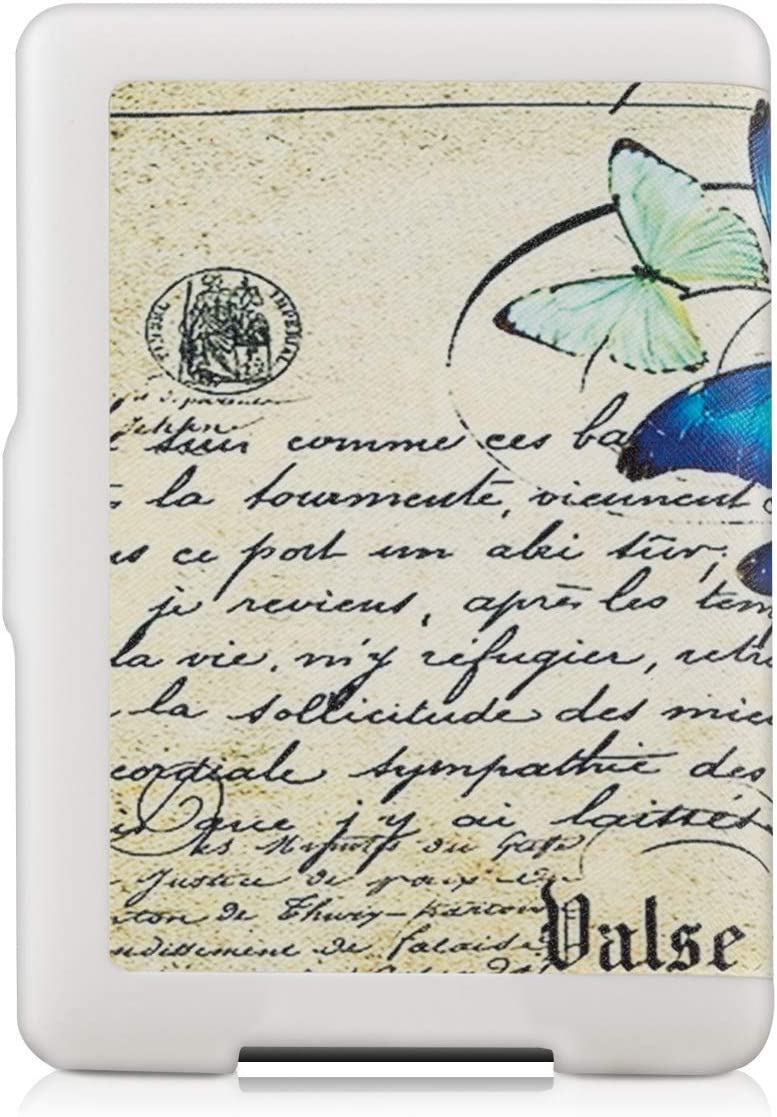 TIMBRE IMPERIAL
sur comme ces ba
la tourmente, viennent
us ce port un abri sûr;
je reviens, après les tem
la vie, m'y réfugier, retro
la sollicitude des mie
cordiale sympathie des
que j'y ai laissés
du
Justice de paix
ton de Thury-Harcourt
ndissement de Falaise.
Valse